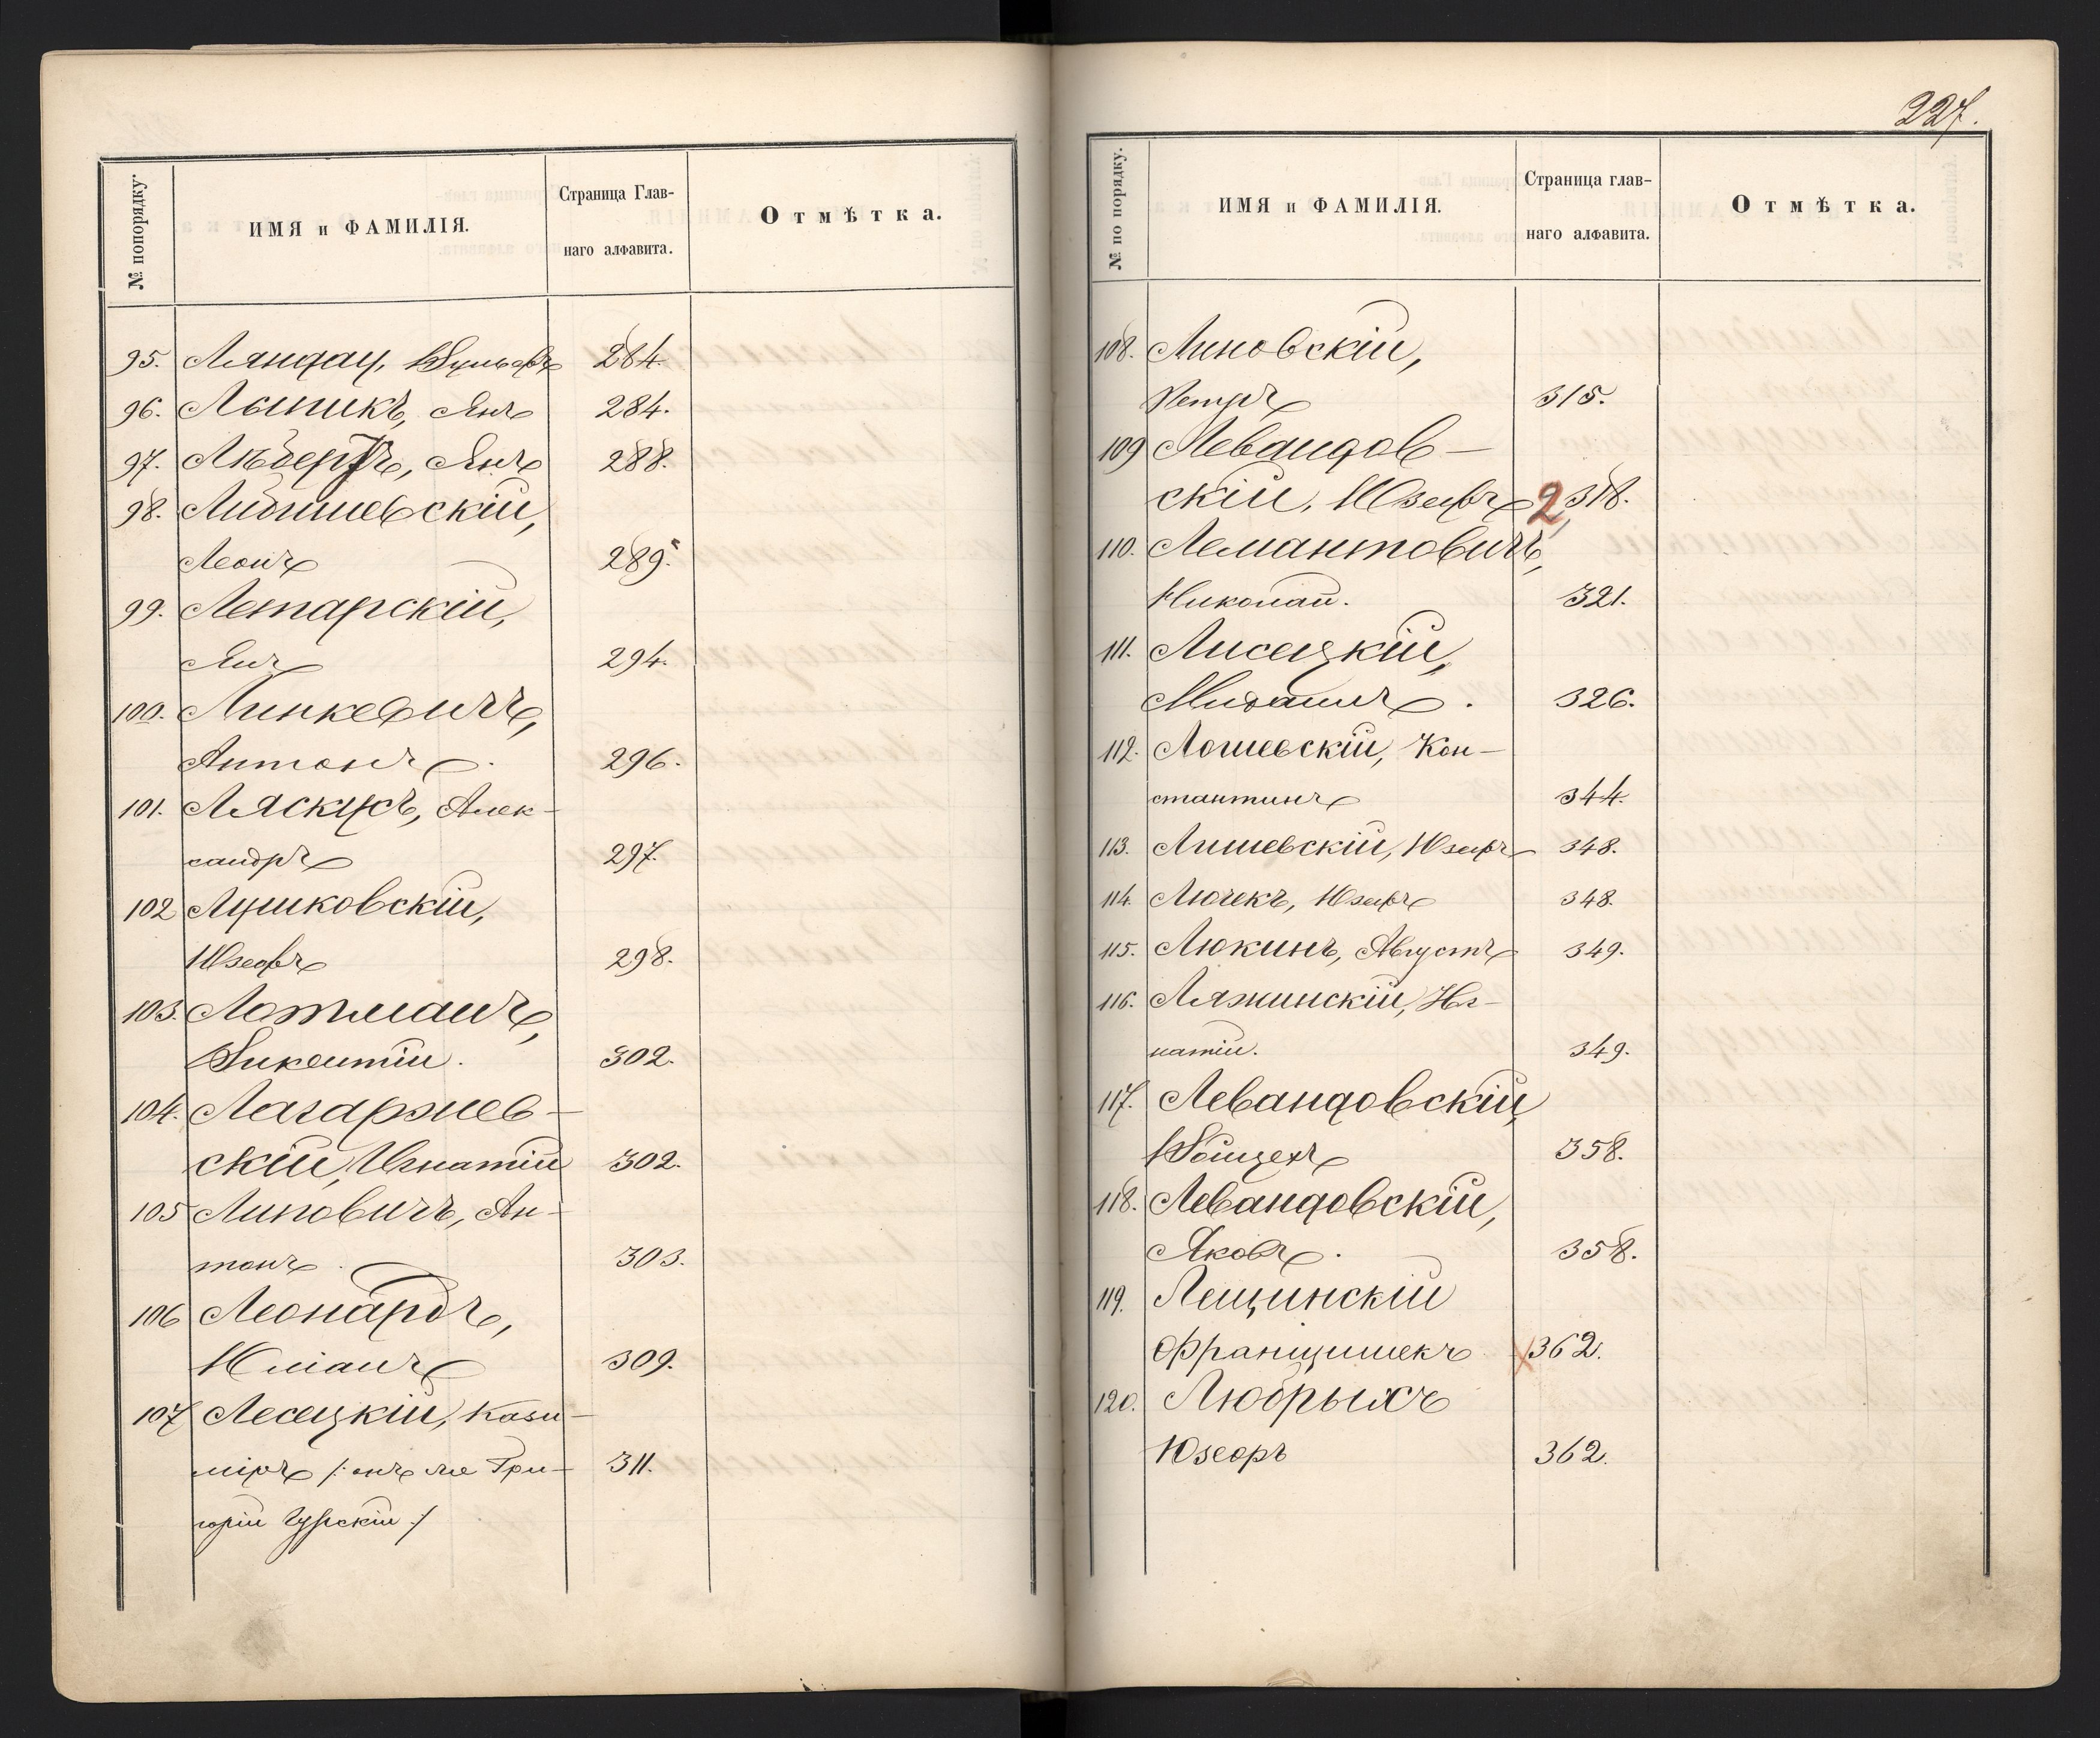 № попорядку.
ИМЯ и ФАМИЛІЯ.
Страница Глав-
наго алфавита.
Отмѣтка.
95. Ляндау, Вульфъ 284.
96. Лыпикъ, Янъ 284.
97. Лѣбертъ, Янъ 288.
98. Либишевскій,
Леонъ 289.
99. Летарскій,
Янъ 294.
100. Линкевичъ,
Антонъ. 296.
101. Ляскусъ, Алек-
сандръ 297.
102 Лушковскій,
Юзефъ 298.
103. Лотманъ,
Викентій. 302.
104. Лагаржев-
скій, Игнатій 302.
105 Линовичъ, Ан-
тонъ. 303.
106 Леонардъ,
Юліанъ 309.
107 Лесецкій, Кази-
міръ /: онъ же Гри- 311.
горій Гурскій :/
227.
№ по порядку.
ИМЯ и ФАМИЛІЯ.
Страница глав-
наго алфавита.
Отмѣтка.
108. Линовскій,
Петръ 315.
109 Левандов-
скій, Юзефъ 2 318.
110. Лемантовичъ,
Николай. 321.
111. Лисецкій,
Михаилъ. 326.
112. Лошевскій, Кон-
стантинъ 344.
113. Лишевскій, Юзефъ 348.
114. Лючекъ, Юзефъ 348.
115. Люкинъ, Августъ 349.
116. Ляжинскій, Иг-
натій. 349.
117. Левандовскій,
Войцехъ 358.
118. Левандовскій,
Яковъ. 358.
119. Лещинскій
Францишекъ 362.
120. Любрыхъ
Юзефъ 362.